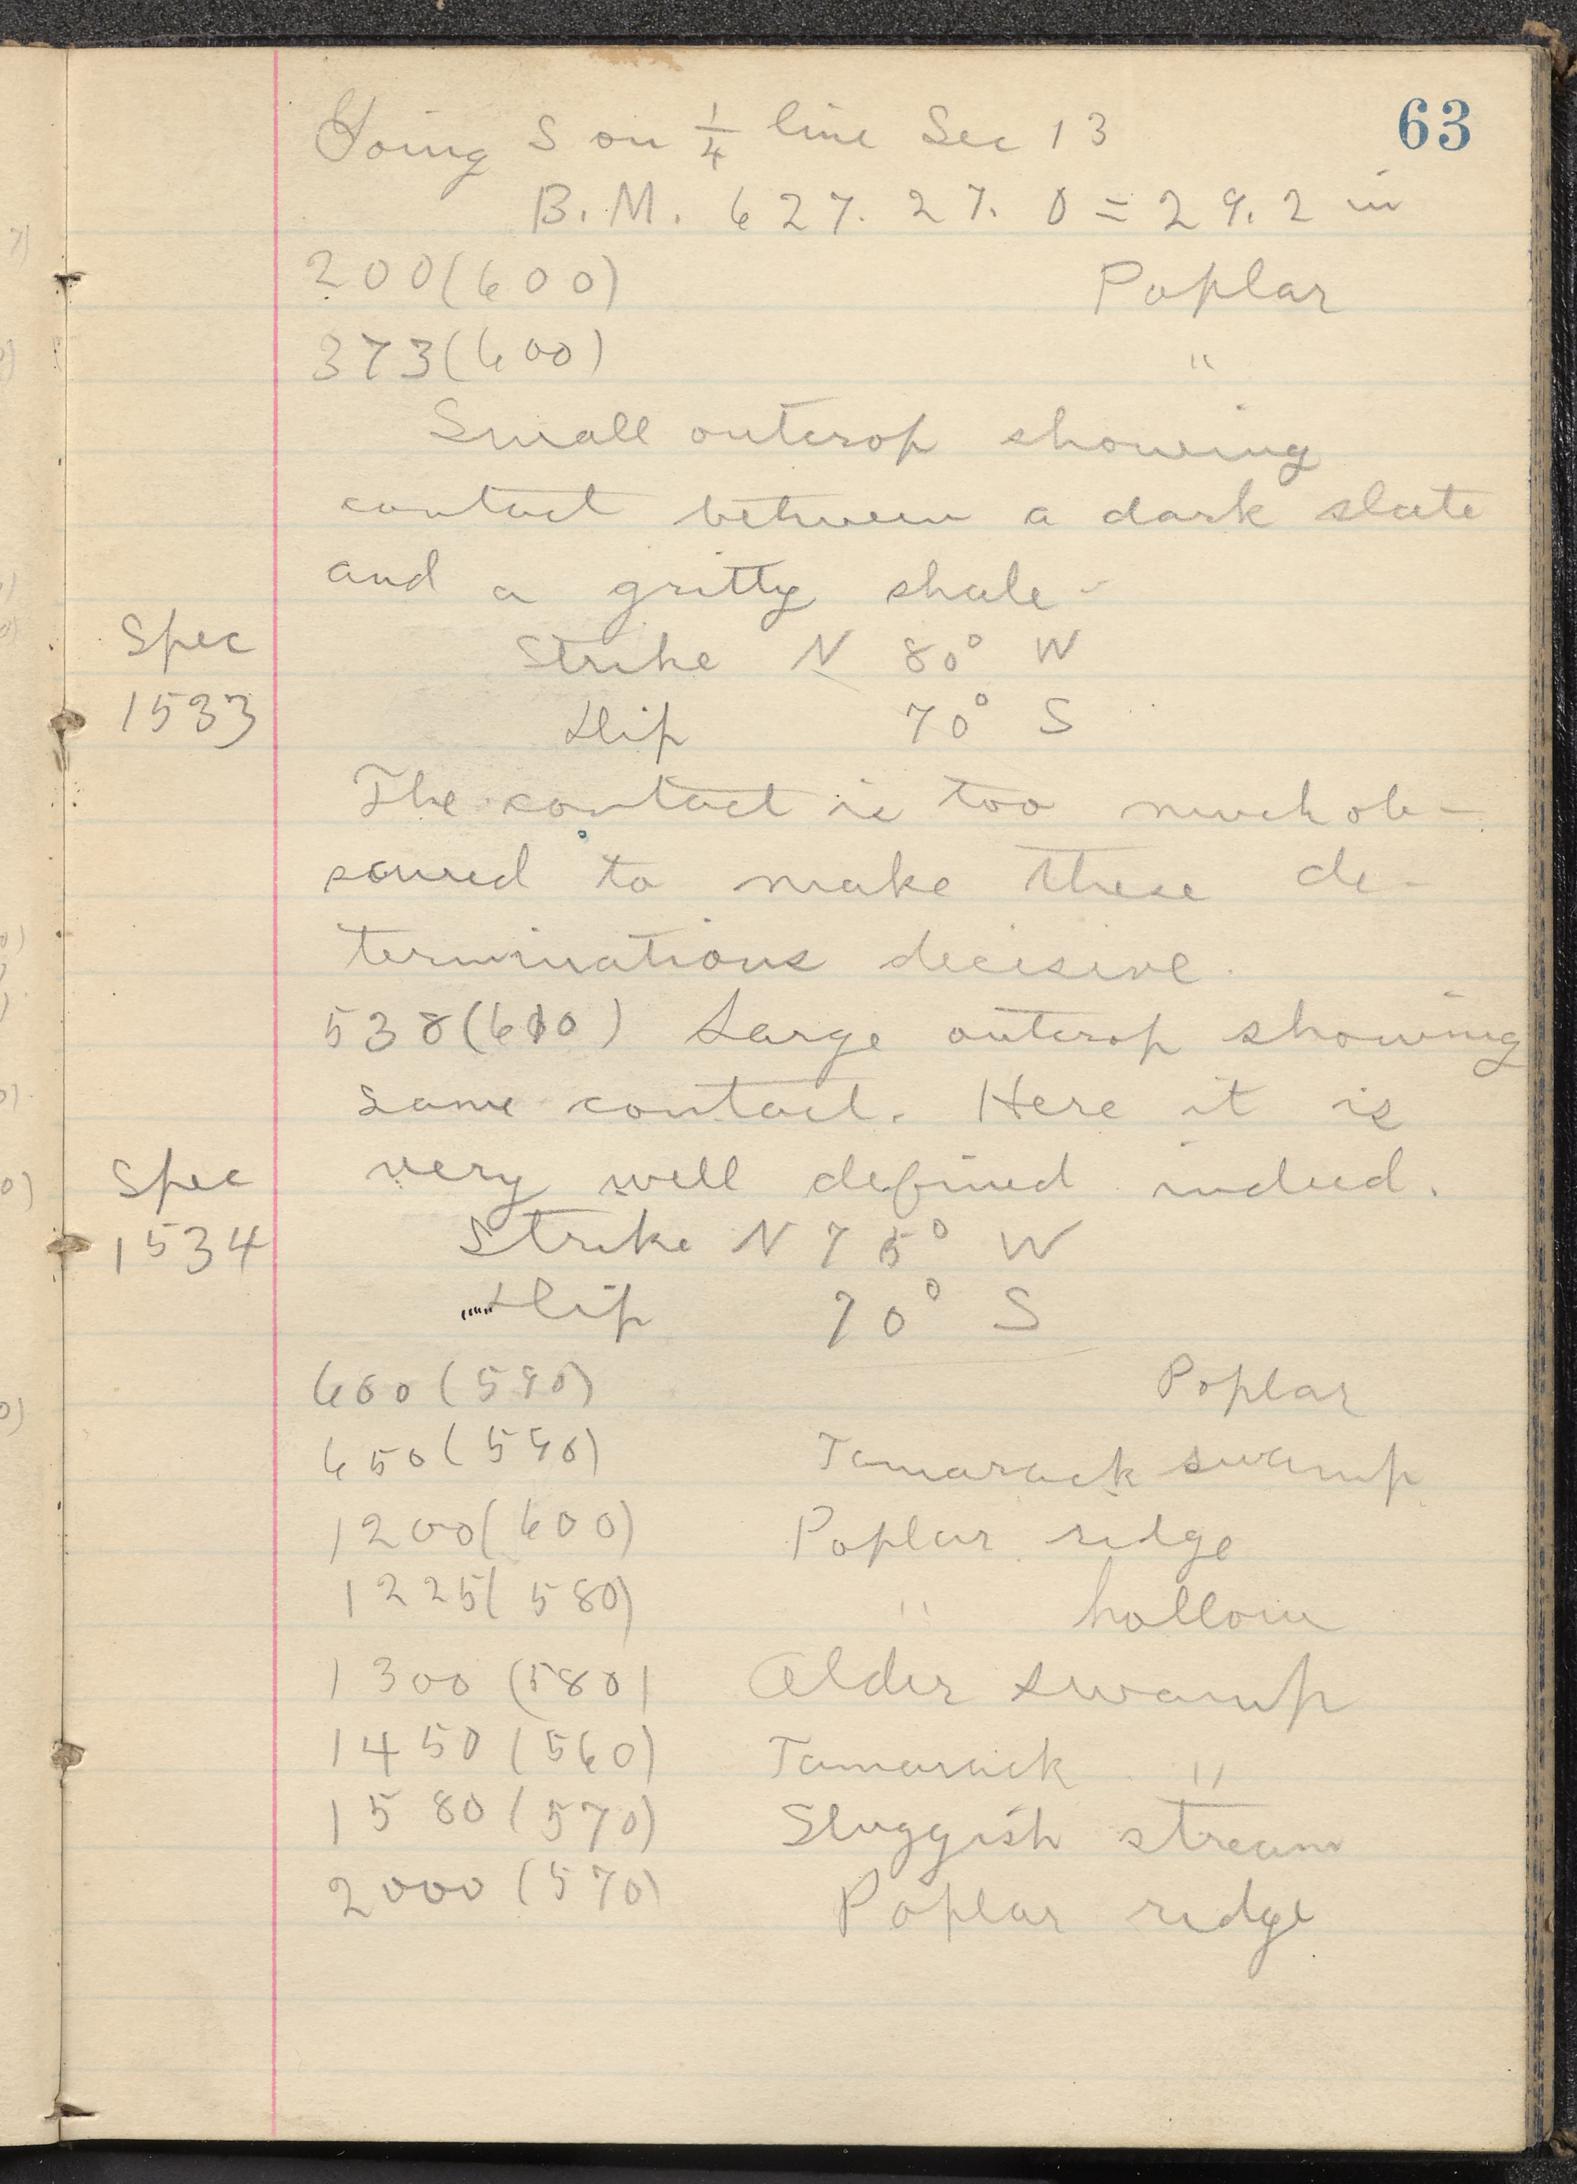 63
Going S on 1/4 line Sec 13
B.M. 627. 27. 0 = 29.2 in
200(600) Poplar
373(600) "
Small outcrop showing
contact between a dark slate
and a gritty shale -
Spec
Strike N 80° W
1533
Dip 70° S
The contact is too much ob-
scured to make these de-
terminations decisive.
538(610) Large outcrop showing
same contact. Here it is
Spec
very well defined indeed.
1534
Strike N 75° W
Dip 70° S
600(590) Poplar
650(590) Tamarack swamp
1200(600) Poplar ridge
1225(580) " hollow
1300 (580) Alder swamp
1450 (560) Tamarack "
1580 (570) Sluggish stream
2000 (570) Poplar ridge